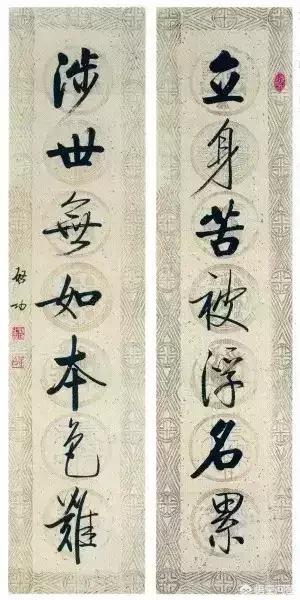 立身苦被浮名累
涉世無如本色難
啟功